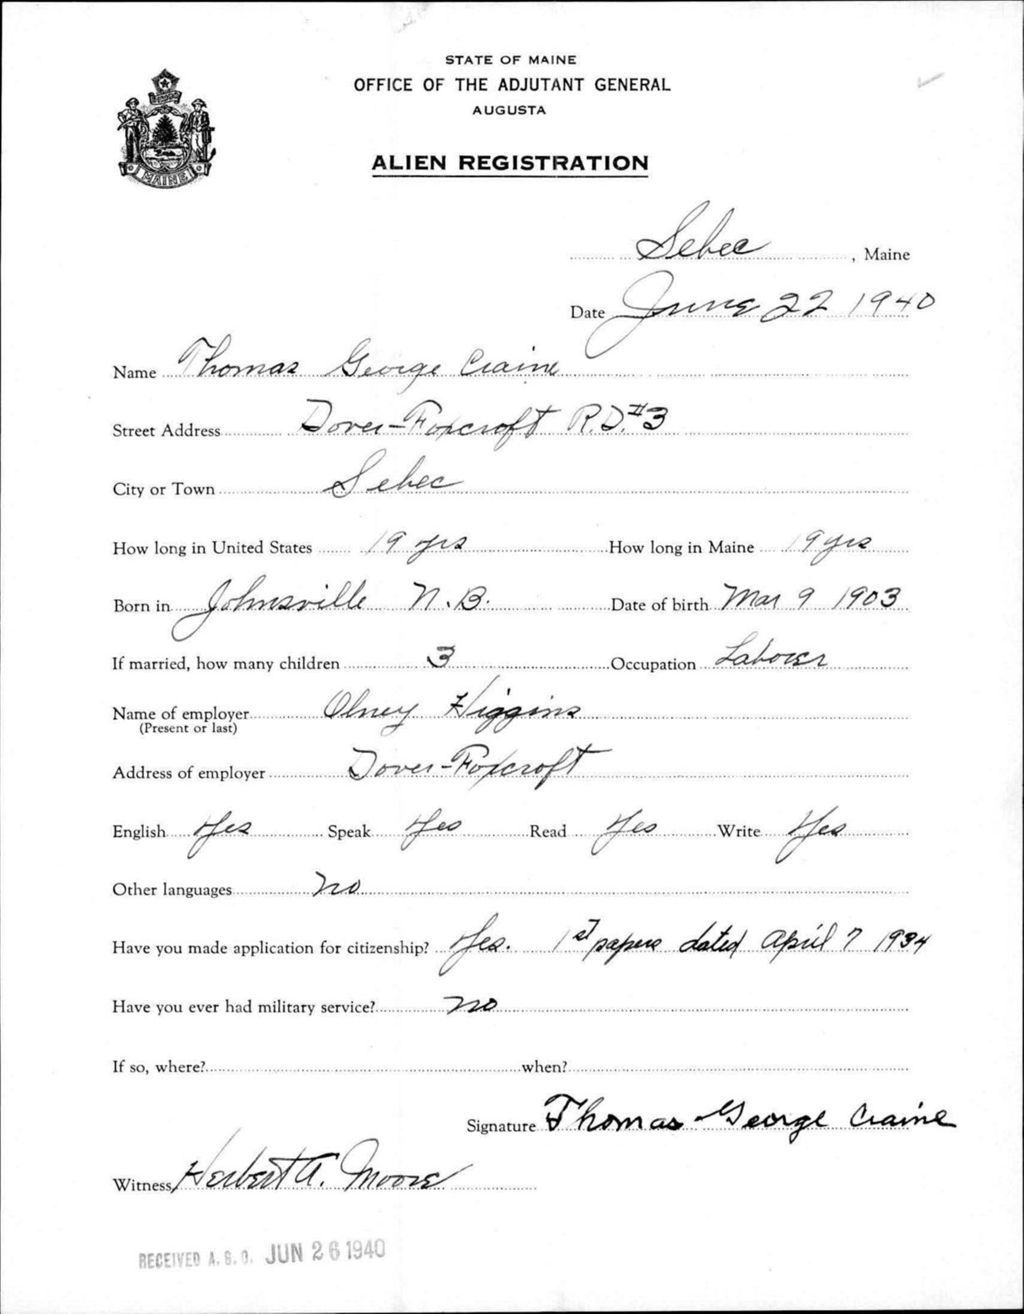 STATE OF MAINE
OFFICE OF THE ADJUTANT GENERAL
AUGUSTA
ALIEN REGISTRATION
MAINE
Sebec, Maine
Date June 22 1940
Name Thomas George Craine
Street Address Dover-Foxcroft R.D. #3
City or Town Sebec
How long in United States 19 yrs How long in Maine 19 yrs
Born in Johnsville N.B. Date of birth Mar 9 1903
If married, how many children 3 Occupation Laborer
Name of employer Olney Higgins
(Present or last)
Address of employer Dover-Foxcroft
English Yes Speak Yes Read Yes Write Yes
Other languages no
Have you made application for citizenship? Yes. 1st papers dated April 7 1934
Have you ever had military service? no
If so, where? when?
Signature Thomas George Craine
Witness Herbert A. Moore
RECEIVED A.G.O. JUN 26 1940